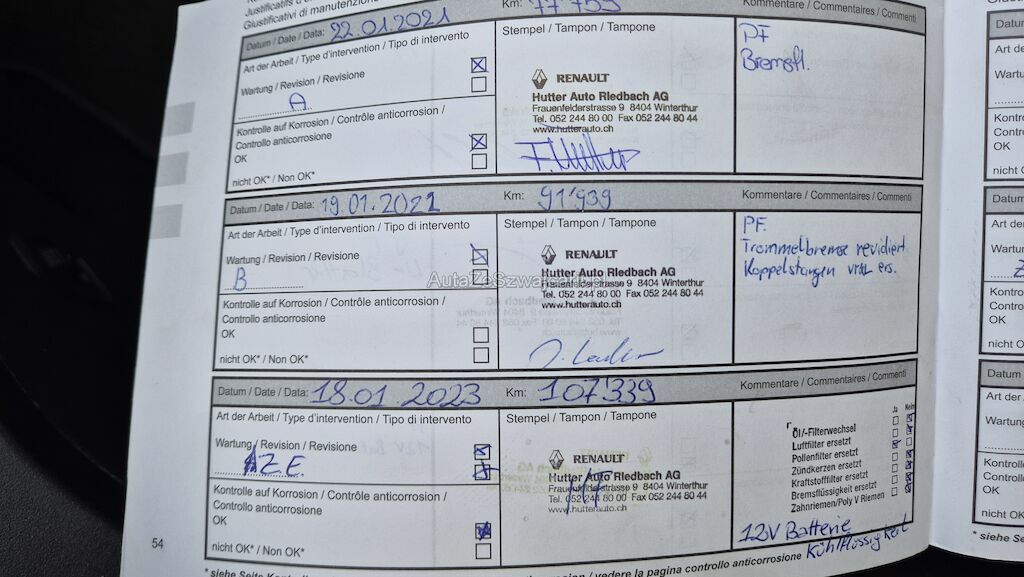 Giustificativi di manutenzione
Datum / Date / Data: 22.01.2021 Km: 77'755 Kommentare / Commentaires / Commenti
Art der Arbeit / Type d'intervention / Tipo di intervento
Wartung / Revision / Revisione
A
Kontrolle auf Korrosion / Contrôle anticorrosion /
Controllo anticorrosione
OK
nicht OK* / Non OK*
Stempel / Tampon / Tampone
RENAULT
Hutter Auto Riedbach AG
Frauenfelderstrasse 9 8404 Winterthur
Tel. 052 244 80 00 Fax 052 244 80 44
www.hutterauto.ch
PF
Bremsfl.
Datum / Date / Data: 19.01.2021 Km: 91'939 Kommentare / Commentaires / Commenti
Art der Arbeit / Type d'intervention / Tipo di intervento
Wartung / Revision / Revisione
B
Kontrolle auf Korrosion / Contrôle anticorrosion /
Controllo anticorrosione
OK
nicht OK* / Non OK*
Stempel / Tampon / Tampone
RENAULT
Hutter Auto Riedbach AG
Frauenfelderstrasse 9 8404 Winterthur
Tel. 052 244 80 00 Fax 052 244 80 44
www.hutterauto.ch
PF.
Trommelbremse revidiert
Koppelstangen ers.
Datum / Date / Data: 18.01.2023 Km: 107'339 Kommentare / Commentaires / Commenti
Art der Arbeit / Type d'intervention / Tipo di intervento
Wartung / Revision / Revisione
ZE
Kontrolle auf Korrosion / Contrôle anticorrosion /
Controllo anticorrosione
OK
nicht OK* / Non OK*
Stempel / Tampon / Tampone
RENAULT
Hutter Auto Riedbach AG
Frauenfelderstrasse 9 8404 Winterthur
Tel. 052 244 80 00 Fax 052 244 80 44
www.hutterauto.ch
Ja Nein
Öl/-Filterwechsel
Luftfilter ersetzt
Pollenfilter ersetzt
Zündkerzen ersetzt
Kraftstofffilter ersetzt
Bremsflüssigkeit ersetzt
Zahnriemen/Poly V Riemen
12V Batterie
Kühlflüssigkeit
54